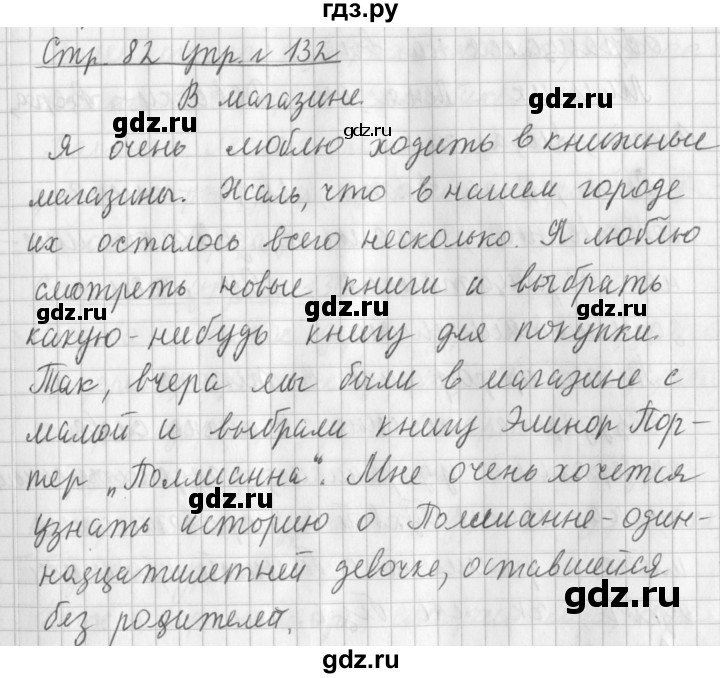 гдз.ру
Стр. 82 упр. № 132
В магазине.
gdz.ru gdz.ru
gdz.ru
Я очень люблю ходить в книжные
магазины. Жаль, что в нашем городе
их осталось всего несколько. Я люблю
смотреть новые книги и выбрать
gdz.ru gdz.ru gdz.ru
какую-нибудь книгу для покупки.
Так, вчера мы были в магазине с
gdz.ru gdz.ru
мамой и выбрали книгу Элинор Пор-
тер „Поллианна“. Мне очень хочется
gdz.ru gdz.ru
узнать историю о Поллианне-один-
надцатилетней девочке, оставшейся
gdz.ru gdz.ru
без родителей.
gdz.ru